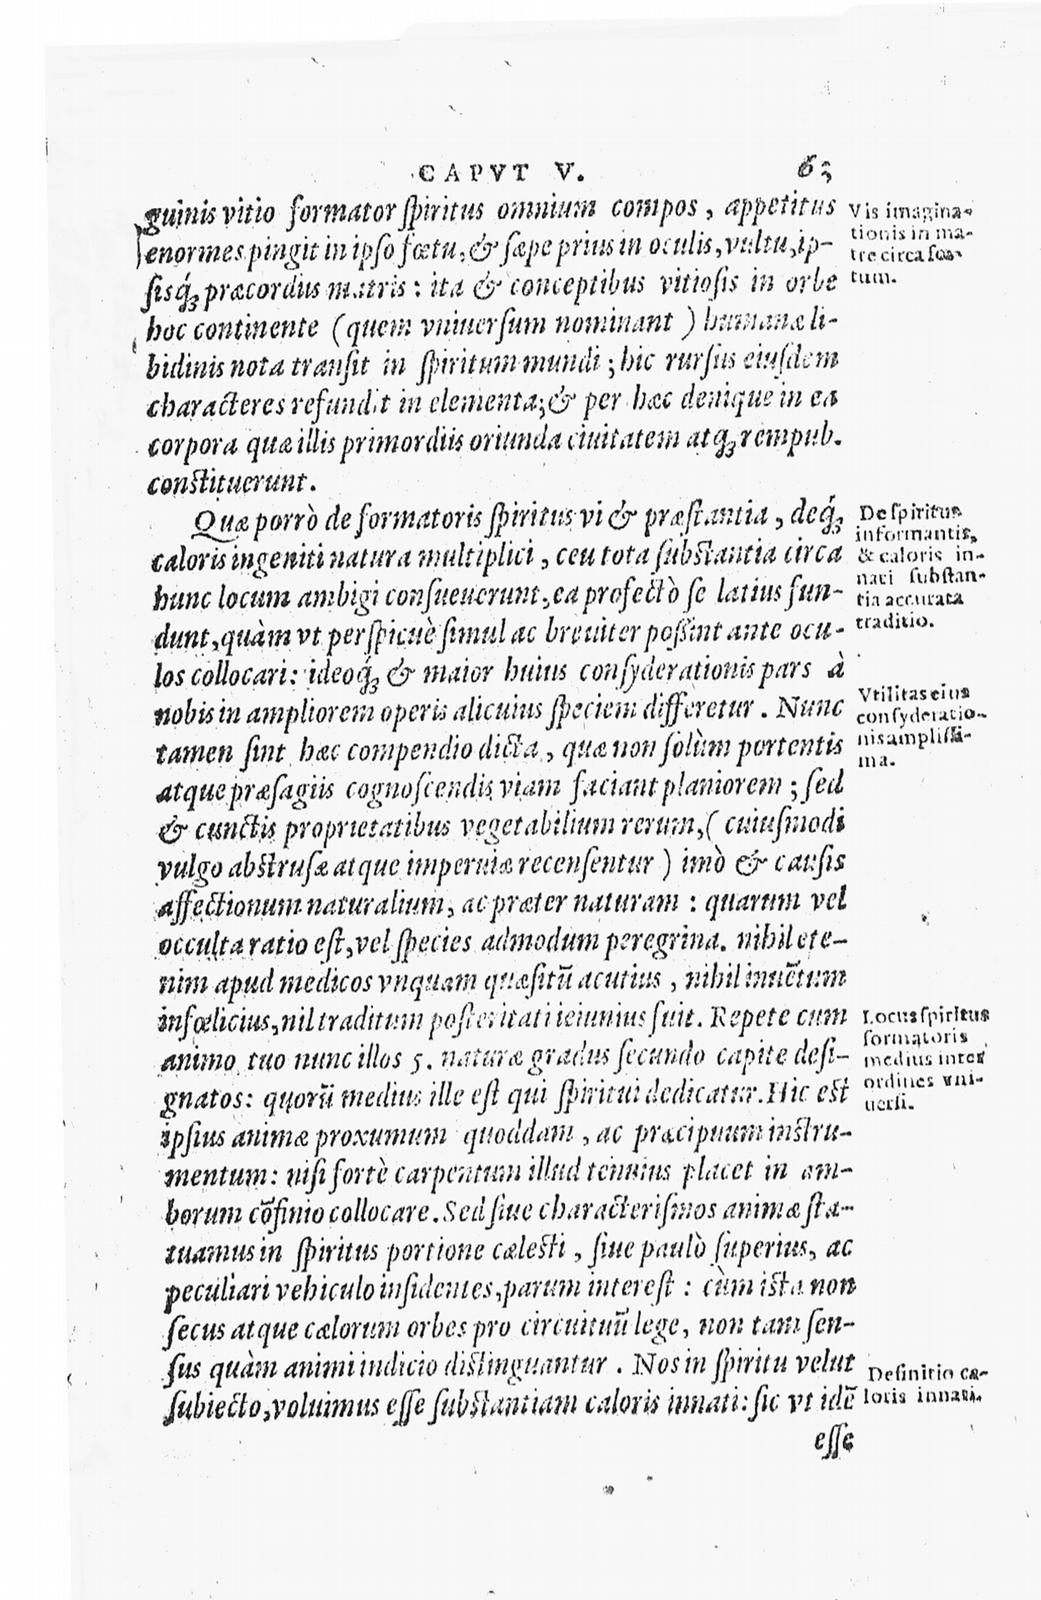 CAPVT V. 63
guinis vitio formator ſpiritus omnium compos, appetitus
enormes pingit in ipſo fœtu, & ſæpe prius in oculis, vultu, ip-
ſisq́; præcordiis matris: ita & conceptibus vitioſis in orbe
hoc continente (quem vniuerſum nominant) humanæ li-
bidinis nota tranſit in ſpiritum mundi; hic rurſus eiuſdem
characteres refundit in elementa; & per hæc denique in ea
corpora quæ illis primordiis oriunda ciuitatem atq; rempub.
conſtituerunt.
Quæ porrò de formatoris ſpiritus vi & præſtantia, deq́;
caloris ingeniti natura multiplici, ceu tota ſubſtantia circa
hunc locum ambigi conſueuerunt, ea profectò ſe latius fun-
dunt, quàm vt perſpicuè ſimul ac breuiter poſſint ante ocu-
los collocari: ideoq́; & maior huius conſyderationis pars à
nobis in ampliorem operis alicuius ſpeciem differetur. Nunc
tamen ſint hæc compendio dicta, quæ non ſolùm portentis
atque præſagiis cognoſcendis viam faciant planiorem; ſed
& cunctis proprietatibus vegetabilium rerum, (cuiuſmodi
vulgo abſtruſæ atque imperuiæ recenſentur) imò & cauſis
affectionum naturalium, ac præter naturam: quarum vel
occulta ratio eſt, vel ſpecies admodum peregrina. nihil ete-
nim apud medicos vnquam quæſitũ acutius, nihil inuẽtum
infœlicius, nil traditum poſteritati ieiunius fuit. Repete cum
animo tuo nunc illos 5. naturæ gradus ſecundo capite deſi-
gnatos: quorũ medius ille eſt qui ſpiritui dedicatur. Hic eſt
ipſius animæ proxumum quoddam, ac præcipuum inſtru-
mentum: niſi fortè carpentum illud tenuius placet in am-
borum cõfinio collocare. Sed ſiue characteriſmos animæ ſta-
tuamus in ſpiritus portione cæleſti, ſiue paulò ſuperius, ac
peculiari vehiculo inſidentes, parum intereſt: cùm iſta non
ſecus atque cælorum orbes pro circuituũ lege, non tam ſen-
ſus quàm animi indicio diſtinguantur. Nos in ſpiritu velut
ſubiecto, voluimus eſſe ſubſtantiam caloris innati: ſic vt idẽ
eſſe
Vis imagina-
tionis in ma-
tre circa fœ-
tum.
De ſpiritus
informantis,
& caloris in-
nati ſubſtan-
tia accurata
traditio.
Vtilitas eius
conſyderatio-
nis ampliſſi-
ma.
Locus ſpiritus
formatoris
medius inter
ordines vni-
uerſi.
Definitio ca-
loris innati.